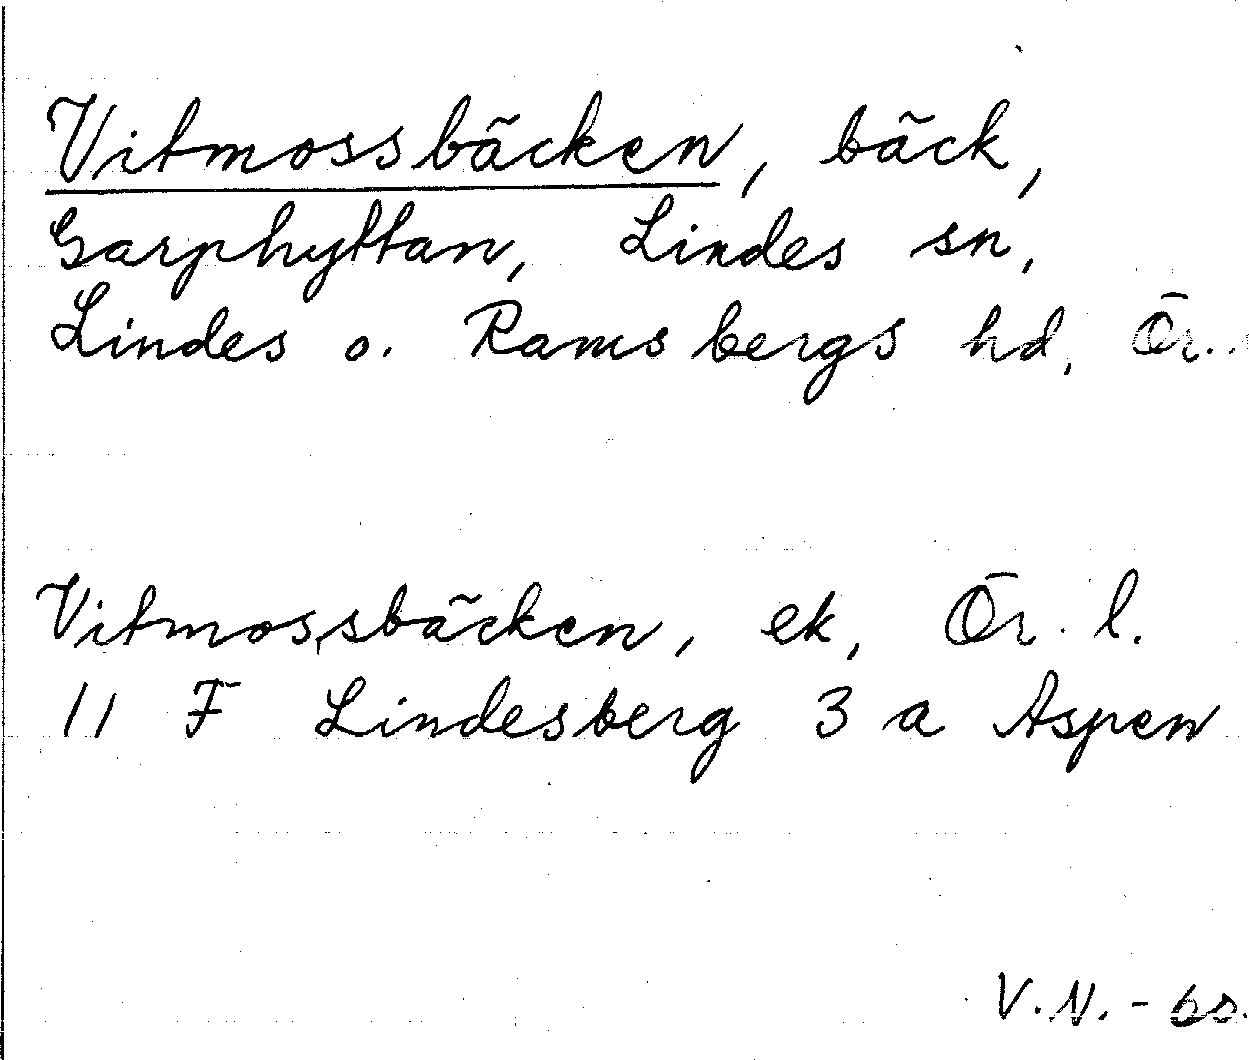 Vitmossbäcken, bäck,
Garphyttan, Lindes sn,
Lindes o. Ramsbergs hd, Ör.
Vitmossbäcken, ek, Ör. l.
11 F Lindesberg 3 a Aspen
V.N. - 60.